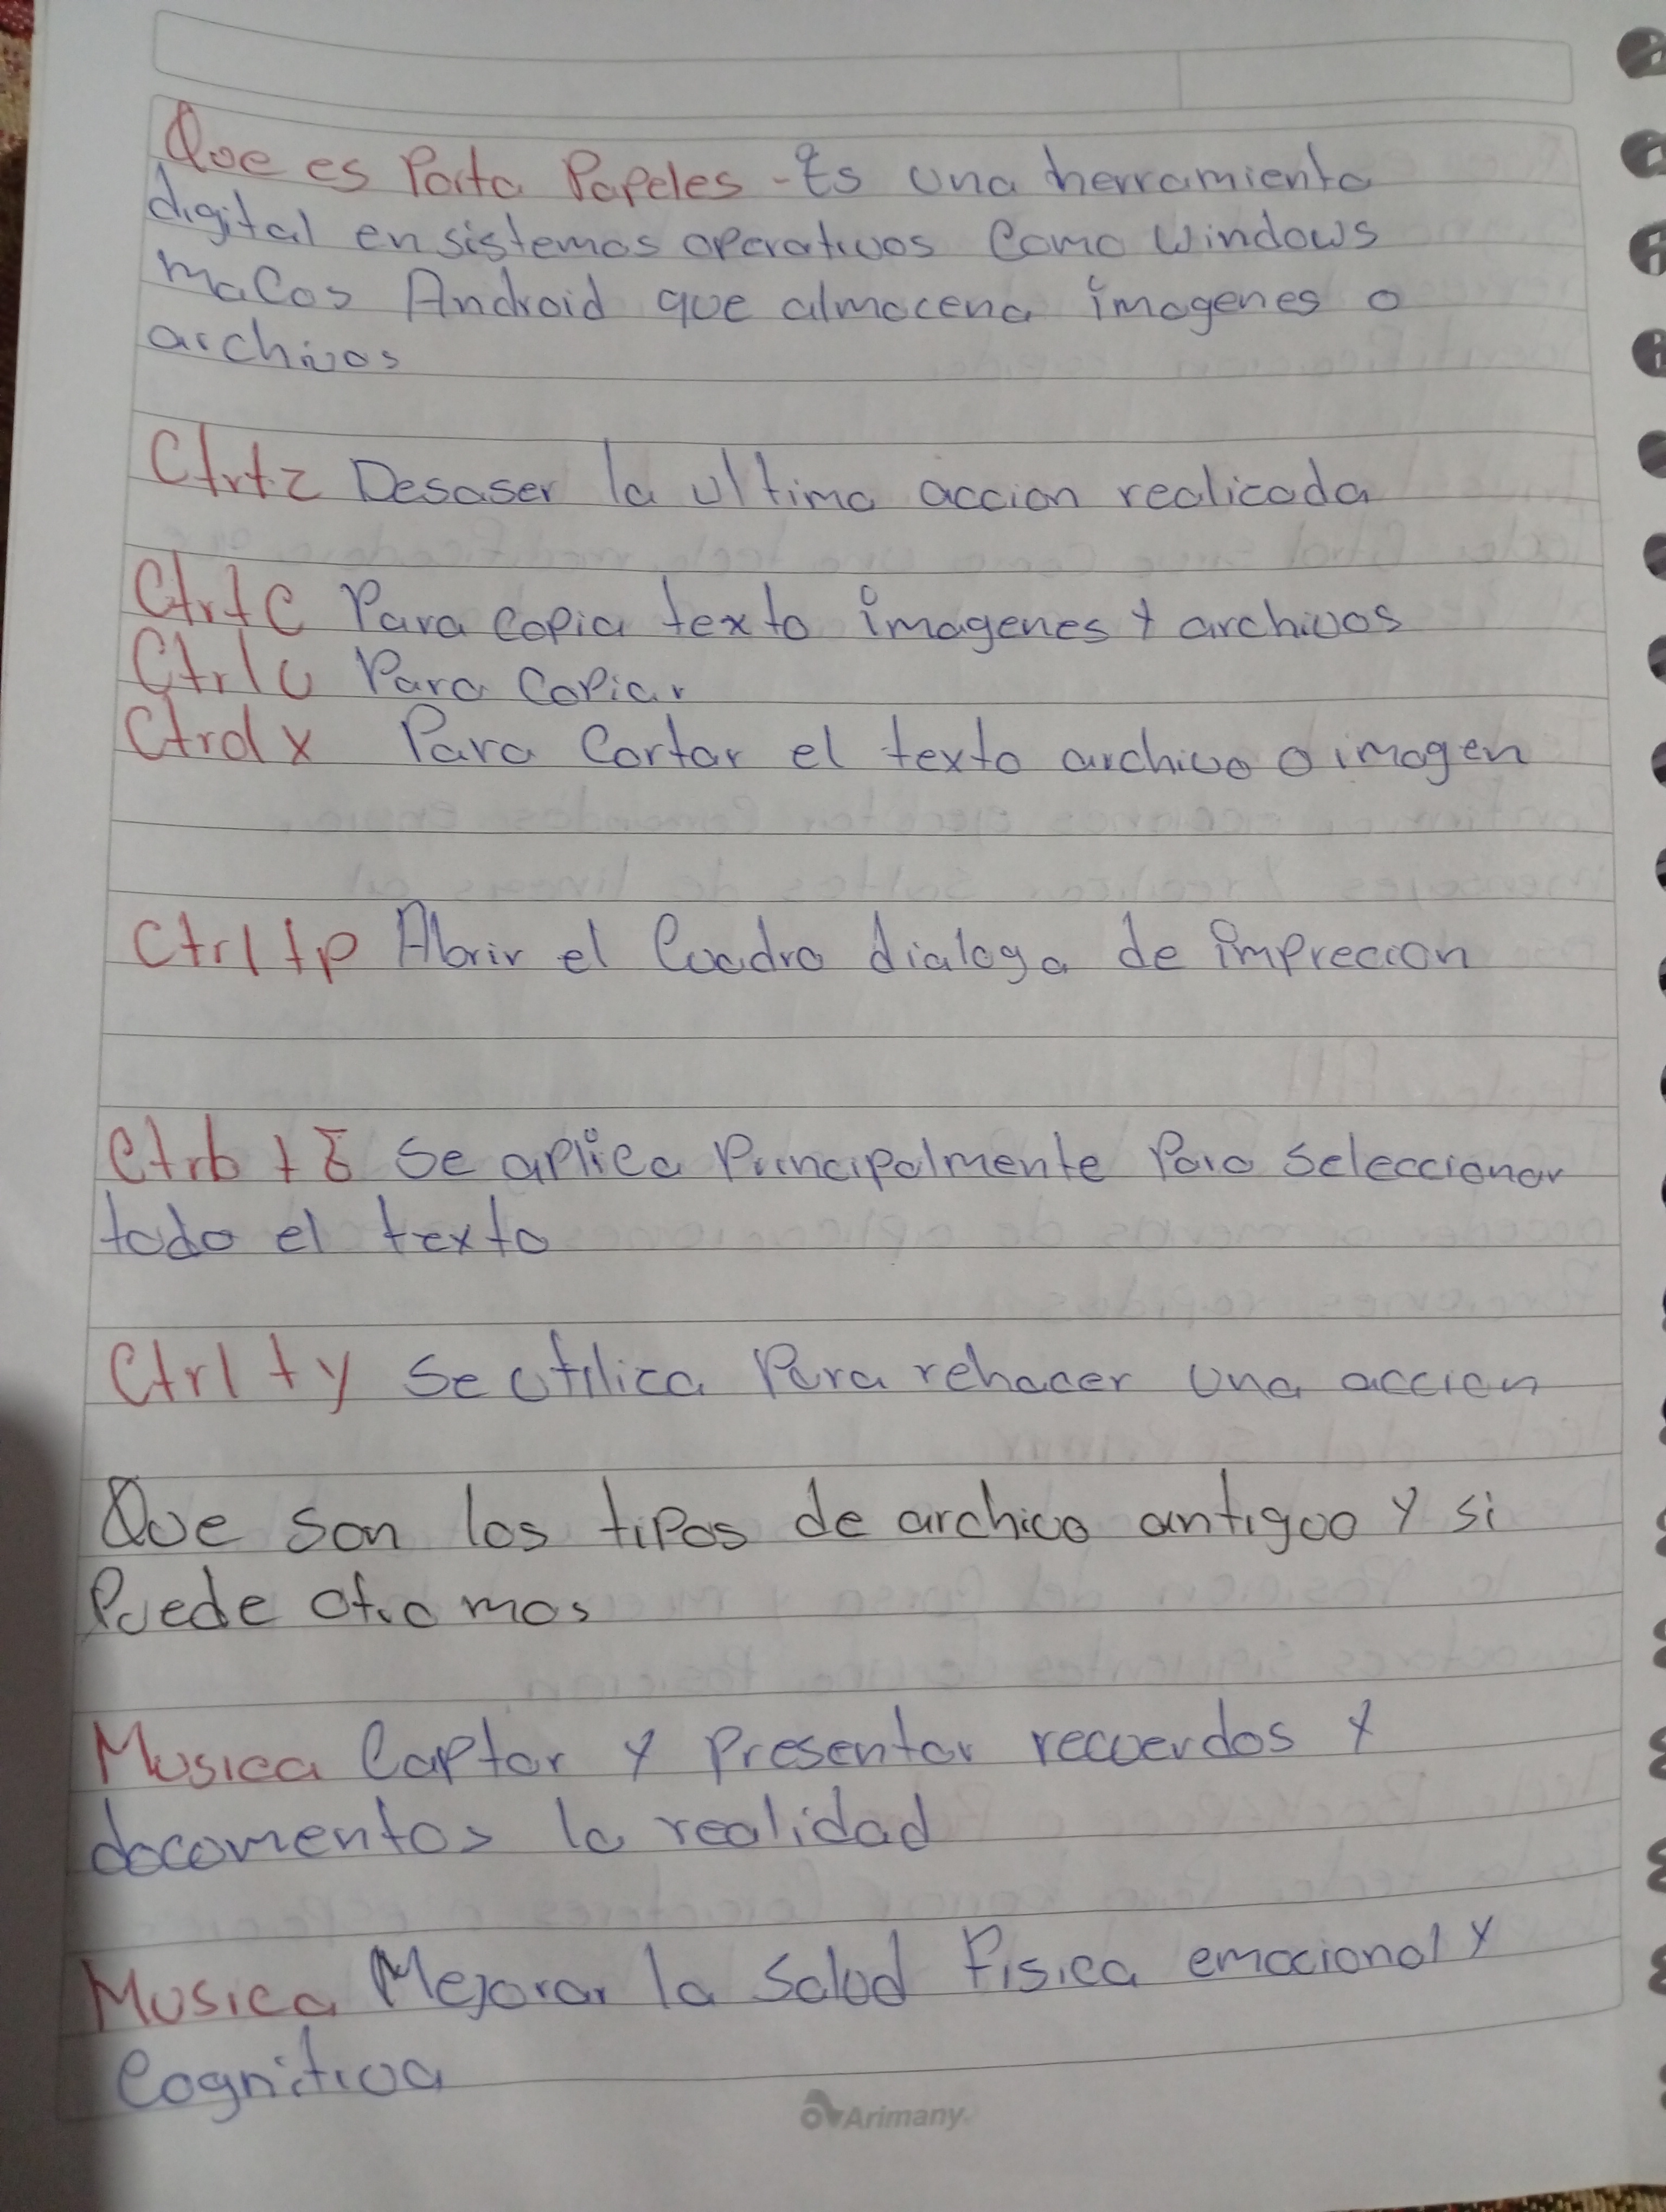 Que es Porta Papeles - Es una herramienta
digital en sistemas operativos Como Windows
MaCos Android que almacena imagenes o
archivos
Ctr+z Desaser la ultima accion realicada
Ctr+C Para copia texto imagenes y archivos
Ctrl v Para Copiar
Ctrol x Para Cortar el texto archivo o imagen
Ctrl +p Abrir el Cuadro dialogo de imprecion
Se aplica Principalmente Para Seleccionar
todo el texto
Ctrl + y Se utilica Para rehacer una accion
Que son los tipos de archivo antiguo y si
Puede mos
Musica Captar y Presentar recuerdos y
documentos la realidad
Musica Mejorar la Salud Fisica emocional y
Cognitiva
Arimany